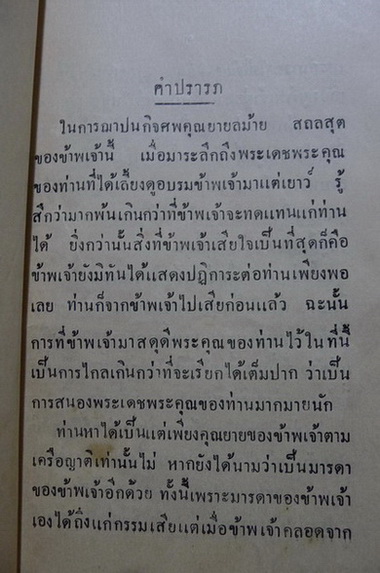 คำปรารภ
ในการฌาปนกิจศพคุณยายลม้าย สถลสุต
ของข้าพเจ้านี้ เมื่อมาระลึกถึงพระเดชพระคุณ
ของท่านที่ได้เลี้ยงดูอบรมข้าพเจ้ามาแต่เยาว์ รู้
สึกว่ามากพ้นเกินกว่าที่ข้าพเจ้าจะทดแทนแก่ท่าน
ได้ ยิ่งกว่านั้นสิ่งที่ข้าพเจ้าเสียใจเป็นที่สุดก็คือ
ข้าพเจ้ายังมิทันได้แสดงปฏิการะต่อท่านเพียงพอ
เลย ท่านก็จากข้าพเจ้าไปเสียก่อนแล้ว ฉะนั้น
การที่ข้าพเจ้ามาสดุดีพระคุณของท่านไว้ในที่นี้
เป็นการไกลเกินกว่าที่จะเรียกได้เต็มปาก ว่าเป็น
การสนองพระเดชพระคุณของท่านมากมายนัก
ท่านหาได้เป็นแต่เพียงคุณยายของข้าพเจ้าตาม
เครือญาติเท่านั้นไม่ หากยังได้นามว่าเป็นมารดา
ของข้าพเจ้าอีกด้วย ทั้งนี้เพราะมารดาของข้าพเจ้า
เองได้ถึงแก่กรรมเสียแต่เมื่อข้าพเจ้าคลอดจาก